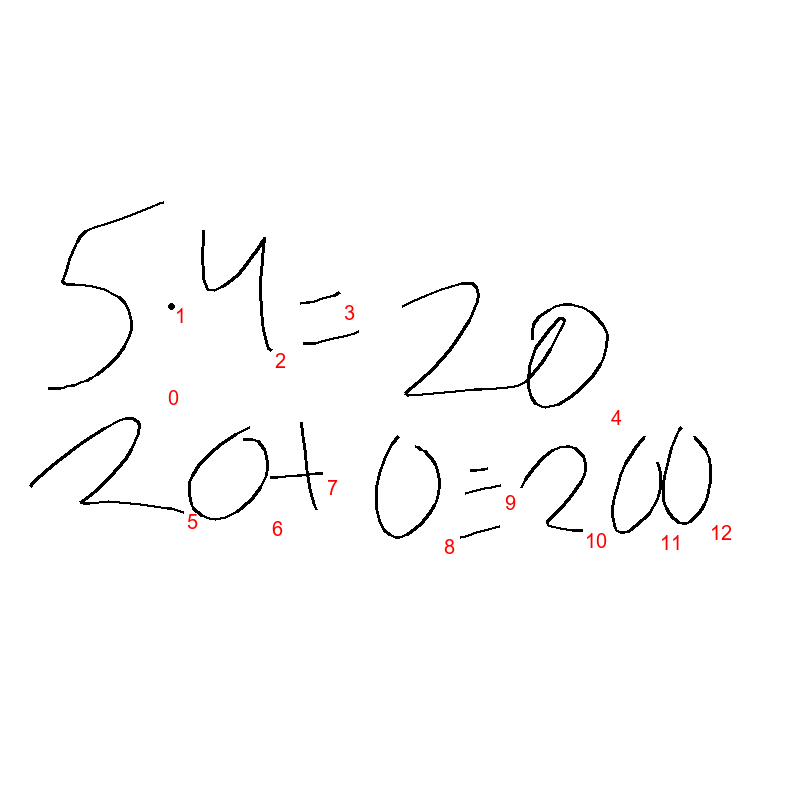 5·4=20
0 1 2 3 4
20+0≡200
5 6 7 8 9 10 11 12